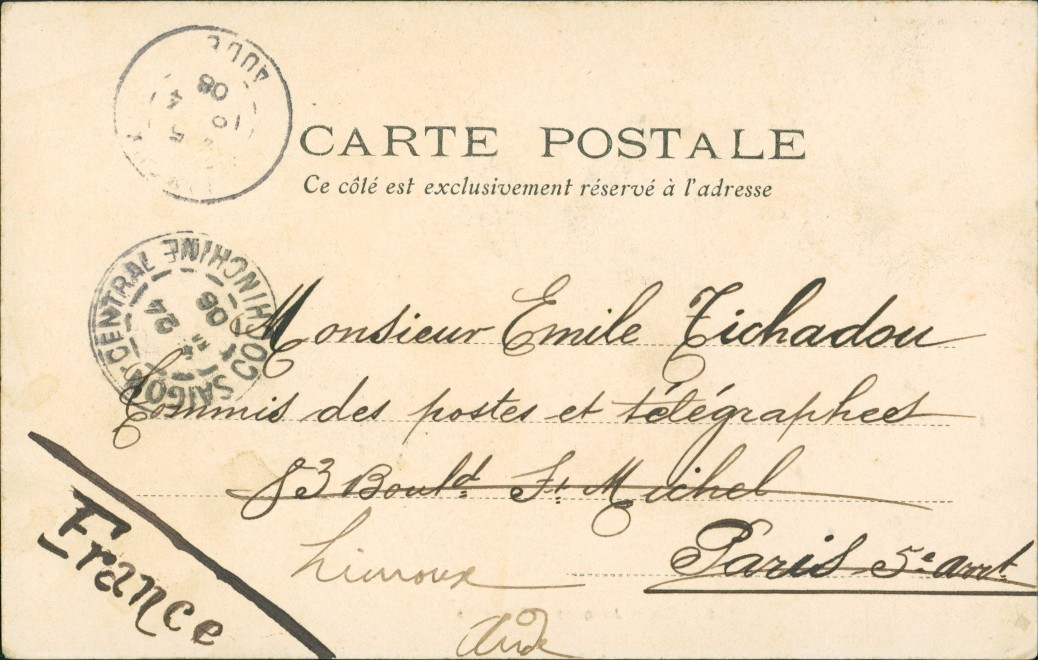 AUDE
5
4
08
CARTE POSTALE
Ce côté est exclusivement réservé à l'adresse
SAIGON CENTRAL COCHINCHINE
24
06
Monsieur Emile Tichadou
Commis des postes et télégraphes
83 Bould St Michel
Limoux
Paris 5e arrt
Aude
France